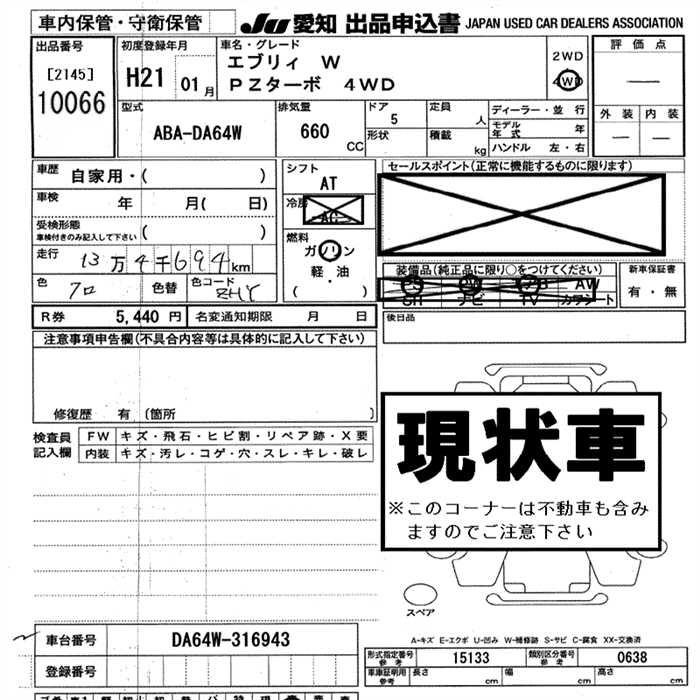 車内保管・守衛保管
JU 愛知 出品申込書 JAPAN USED CAR DEALERS ASSOCIATION
出品番号
[2145]
10066
初度登録年月
H21 01月
車名・グレード
エブリィ W
PZターボ 4WD
2WD
4WD
評価点
外装 内装
型式
ABA-DA64W
排気量
660
CC
ドア
5
形状
定員
人
積載
kg
ディーラー・並行
モデル年式 年
ハンドル 左・右
車歴
自家用・( )
車検
年 月( 日)
受検形態
車検付きのみ記入して下さい ( )
走行
13万4千694km
色
クロ
色替
色コード
ZHY
シフト
AT
冷房
AC
燃料
ガソリン
軽・油
( )
セールスポイント(正常に機能するものに限ります)
装備品(純正品に限り○をつけてください)
PS PW エアB AW
SR ナビ TV カワシート
新車保証書
有・無
R券 5,440円 名変通知期限 月 日
後日品
注意事項申告欄(不具合内容等は具体的に記入して下さい)
修復歴 有 〔箇所 〕
検査員記入欄
FW キズ・飛石・ヒビ割・リペア跡・X要
内装 キズ・汚レ・コゲ・穴・スレ・キレ・破レ
現状車
※このコーナーは不動車も含み
ますのでご注意下さい
スペア
A-キズ E-エクボ U-凹み W-補修跡 S-サビ C-腐食 XX-交換済
車台番号 DA64W-316943
登録番号
形式指定番号
参考
15133
類別区分番号
参考
0638
車庫証明用
参考
長さ cm 幅 cm 高さ cm